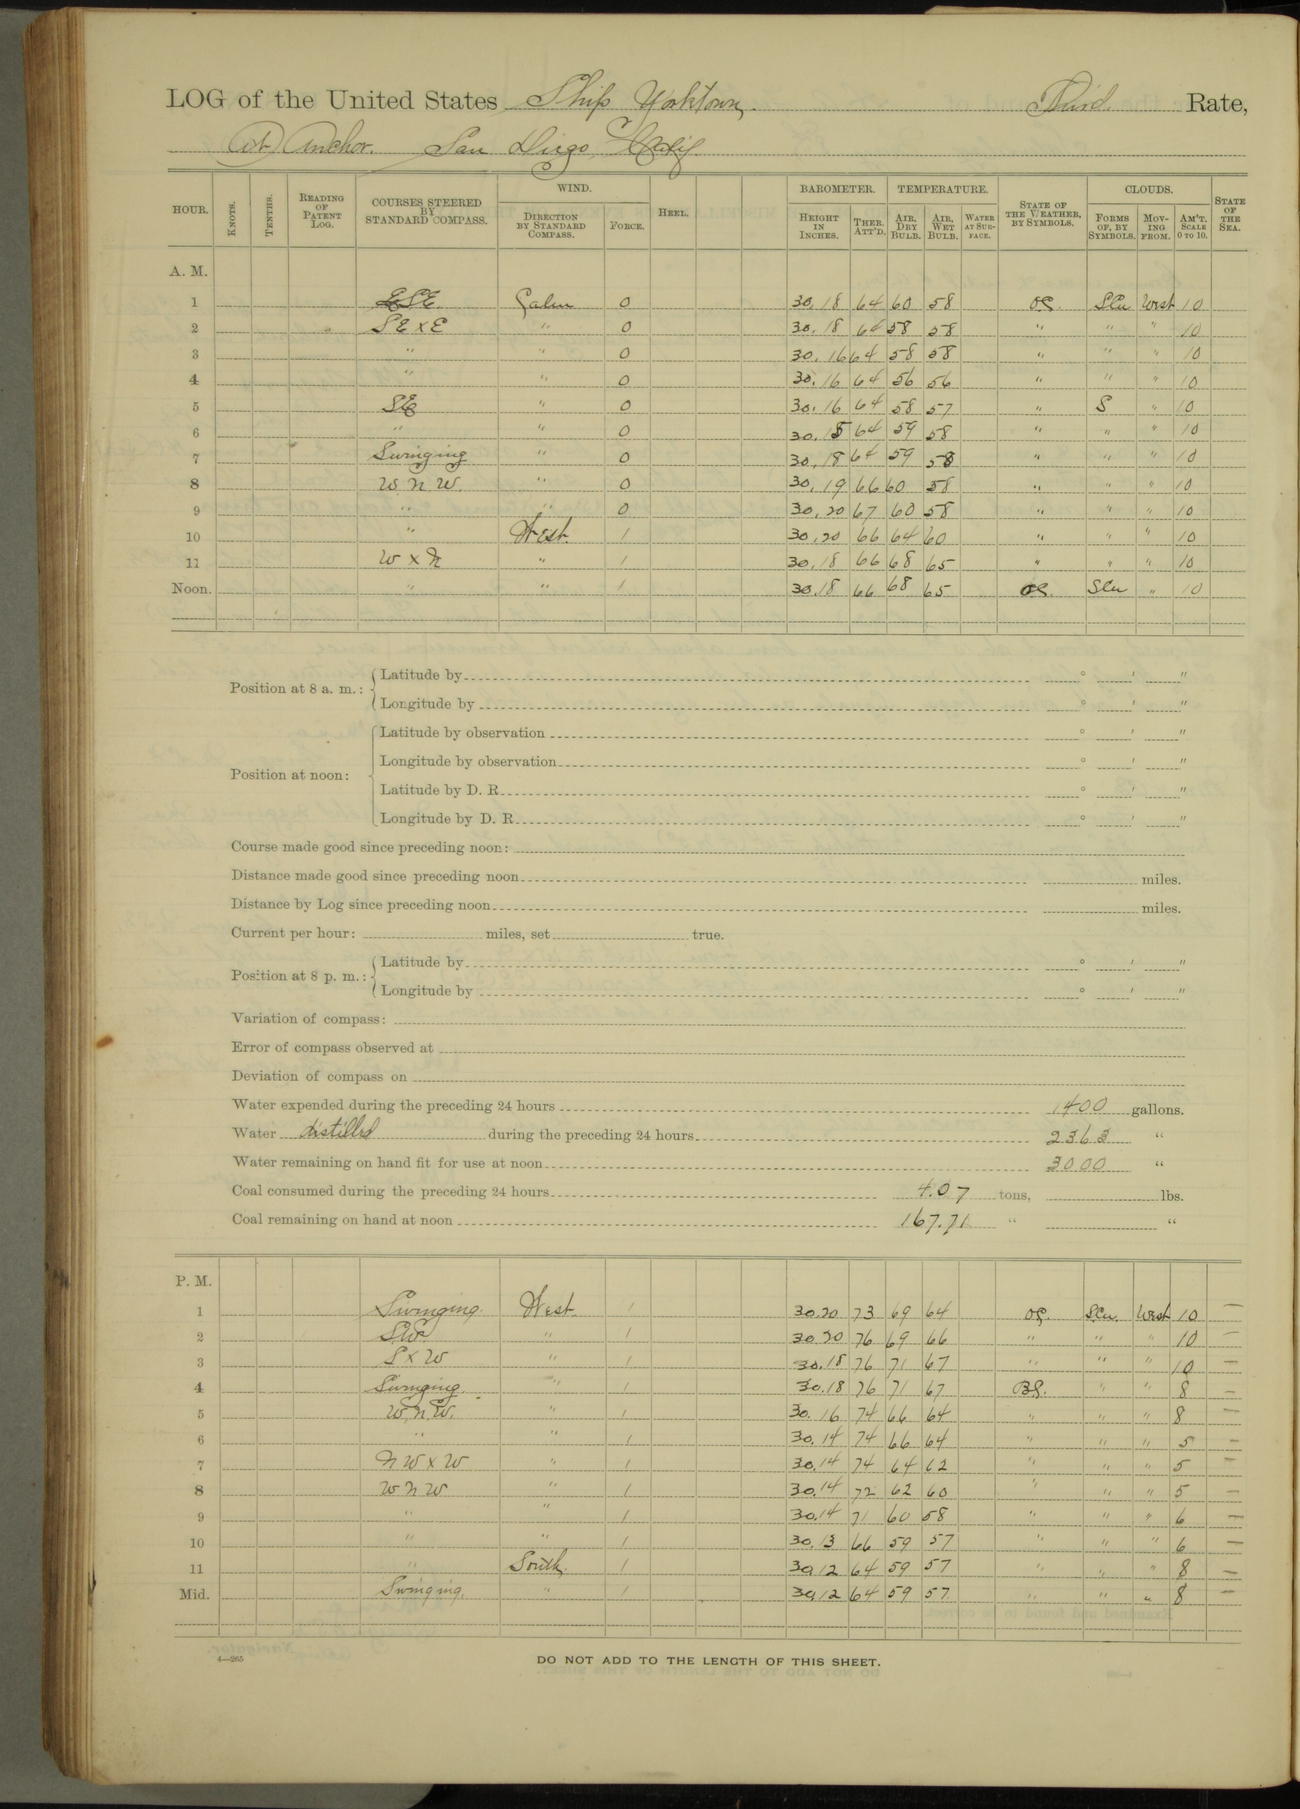 LOG of the United States Ship Yorktown, Third Rate,
At Anchor. San Diego, Calif
HOUR. KNOTS. TENTHS. READING OF PATENT LOG. COURSES STEERED BY STANDARD COMPASS. WIND. DIRECTION BY STANDARD COMPASS. FORCE. HEEL. BAROMETER. HEIGHT IN INCHES. THER. ATT'D. TEMPERATURE. AIR, DRY BULB. AIR, WET BULB. WATER AT SURFACE. STATE OF THE WEATHER, BY SYMBOLS. CLOUDS. FORMS OF, BY SYMBOLS. MOVING FROM. AM'T. SCALE 0 TO 10. STATE OF THE SEA.
A. M.
1 ESE Calm 0 30.18 64 60 58 OC. SCu West 10
2 SE x E " 0 30.18 64 58 58 " " " 10
3 " " 0 30.16 64 58 58 " " " 10
4 " " 0 30.16 64 56 56 " " " 10
5 SE " 0 30.16 64 58 57 " S " 10
6 " " 0 30.15 64 59 58 " " " 10
7 Swinging " 0 30.18 64 59 58 " " " 10
8 W. N. W. " 0 30.19 66 60 58 " " " 10
9 " " 0 30.20 67 60 58 " " " 10
10 " West. 1 30.20 66 64 60 " " " 10
11 W x N " 1 30.18 66 68 65 " " " 10
Noon. " " 1 30.18 66 68 65 OC. SCu " 10
Position at 8 a. m.: Latitude by ° ' "
Longitude by ° ' "
Position at noon: Latitude by observation ° ' "
Longitude by observation ° ' "
Latitude by D. R. ° ' "
Longitude by D. R. ° ' "
Course made good since preceding noon:
Distance made good since preceding noon miles.
Distance by Log since preceding noon miles.
Current per hour: miles, set true.
Position at 8 p. m.: Latitude by ° ' "
Longitude by ° ' "
Variation of compass:
Error of compass observed at
Deviation of compass on
Water expended during the preceding 24 hours 1400 gallons.
Water distilled during the preceding 24 hours 2363 "
Water remaining on hand fit for use at noon 3000 "
Coal consumed during the preceding 24 hours 4.07 tons, lbs.
Coal remaining on hand at noon 167.71 " "
P. M.
1 Swinging. West 1 30.20 73 69 64 OC. SCu. West 10 —
2 SW. " 1 30.20 76 69 66 " " " 10 —
3 S x W " 1 30.18 76 71 67 " " " 10 —
4 Swinging. " 1 30.18 76 71 67 BC. " " 8 —
5 W. N. W. " 1 30.16 74 66 64 " " " 8 —
6 " " 1 30.14 74 66 64 " " " 5 —
7 N W x W " 1 30.14 74 64 62 " " " 5 —
8 W N W " 1 30.14 72 62 60 " " " 5 —
9 " " 1 30.14 71 60 58 " " " 6 —
10 " " 1 30.13 66 59 57 " " " 6 —
11 " South. 1 30.12 64 59 57 " " " 8 —
Mid. Swinging. " 1 30.12 64 59 57 " " " 8 —
4—265
DO NOT ADD TO THE LENGTH OF THIS SHEET.